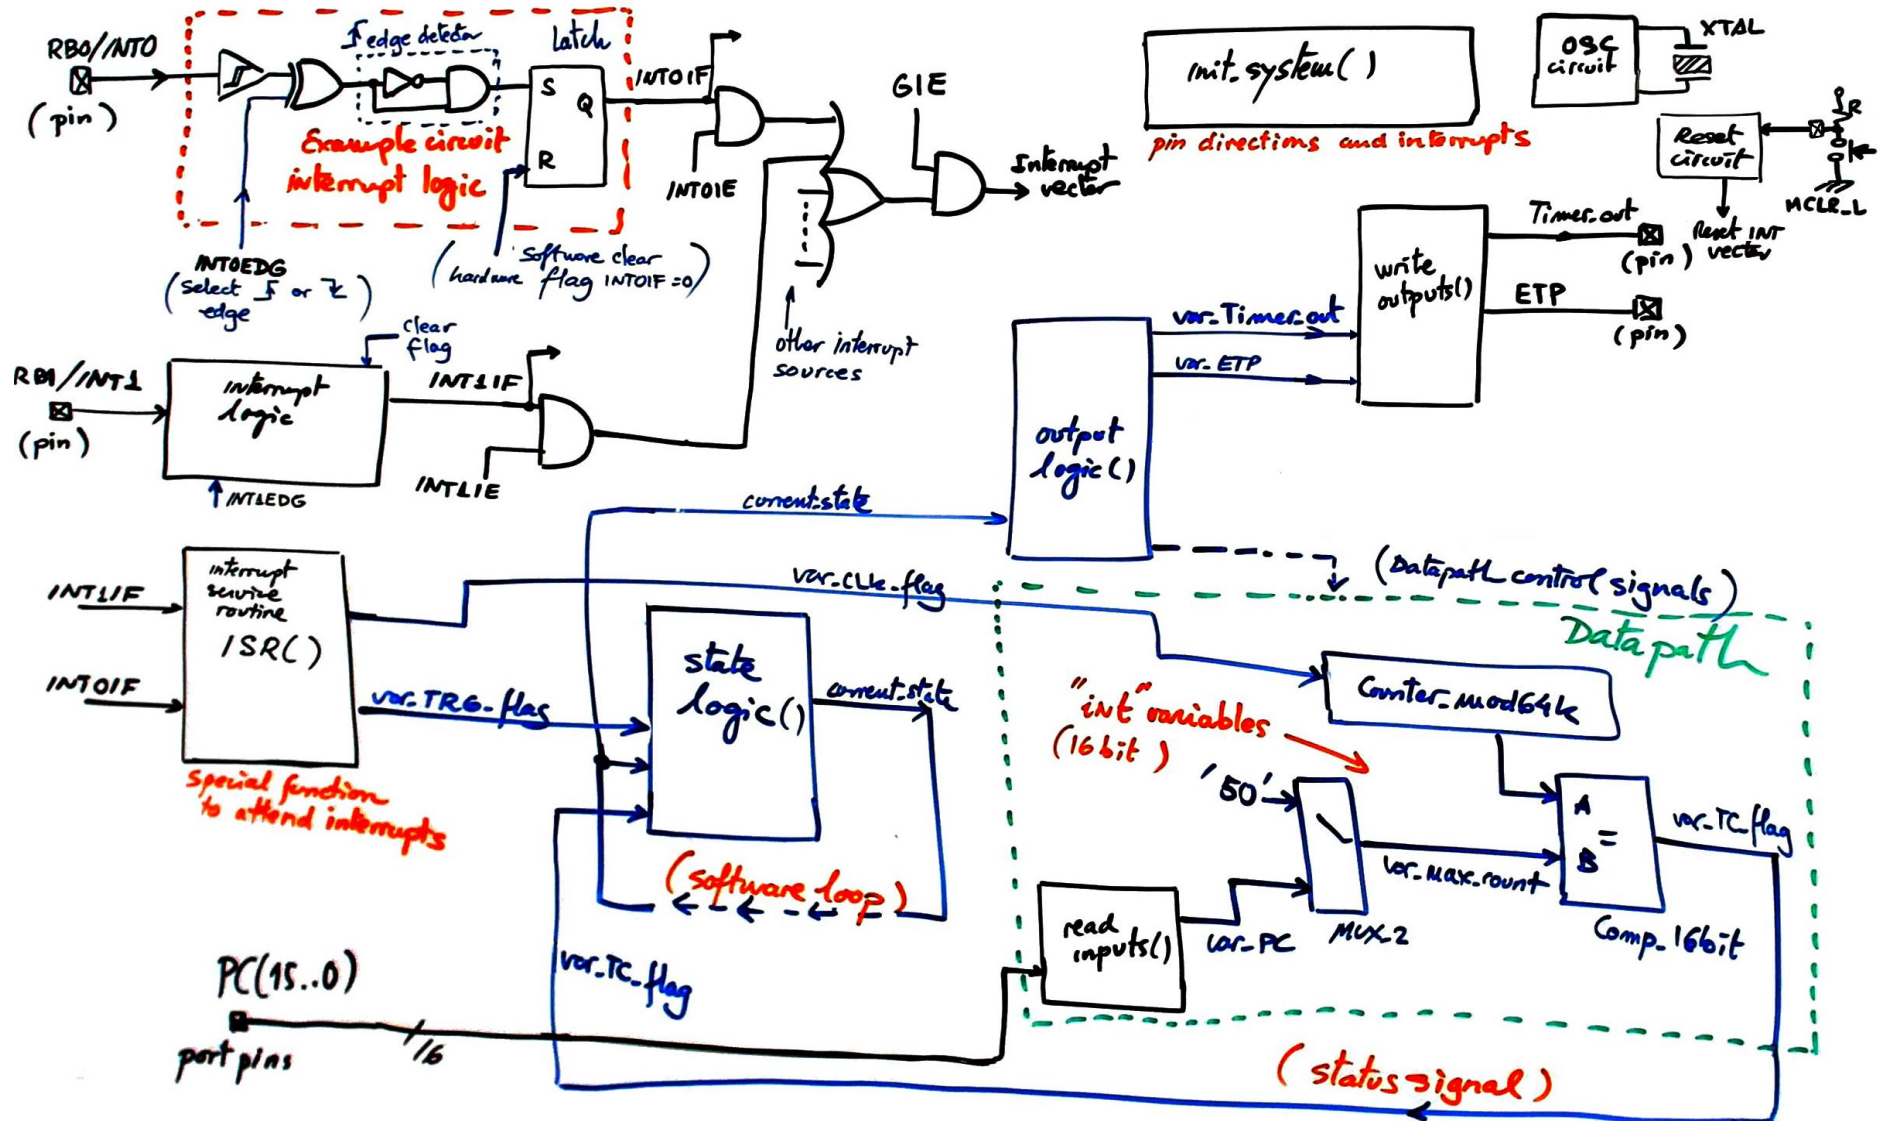 RB0/INT0
(pin)
edge detector
Latch
S
Q
R
Example circuit
interrupt logic
INT0EDG
(select or
edge
)
(software clear
hardware flag INT0IF=0)
INT0IF
INT0IE
GIE
Interrupt
vector
other interrupt
sources
init_system()
pin directions and interrupts
OSC
circuit
XTAL
Reset
circuit
R
MCLR_L
Reset INT
vector
RB1/INT1
(pin)
interrupt
logic
clear
flag
INT1EDG
INT1IF
INT1IE
write
outputs()
Timer_out
(pin)
ETP
(pin)
output
logic()
var_Timer_out
var_ETP
current_state
(Datapath control signals)
INT1IF
INT0IF
interrupt
service
routine
ISR()
special function
to attend interrupts
var_CLK_flag
var_TRG_flag
state
logic()
current_state
(software loop)
var_TC_flag
Datapath
"int" variables
(16 bit)
Counter_mod64k
'50'
MUX_2
var_Max_count
A
=
B
Comp_16bit
var_TC_flag
read
inputs()
var_PC
PC(15..0)
port pins
16
(status signal)